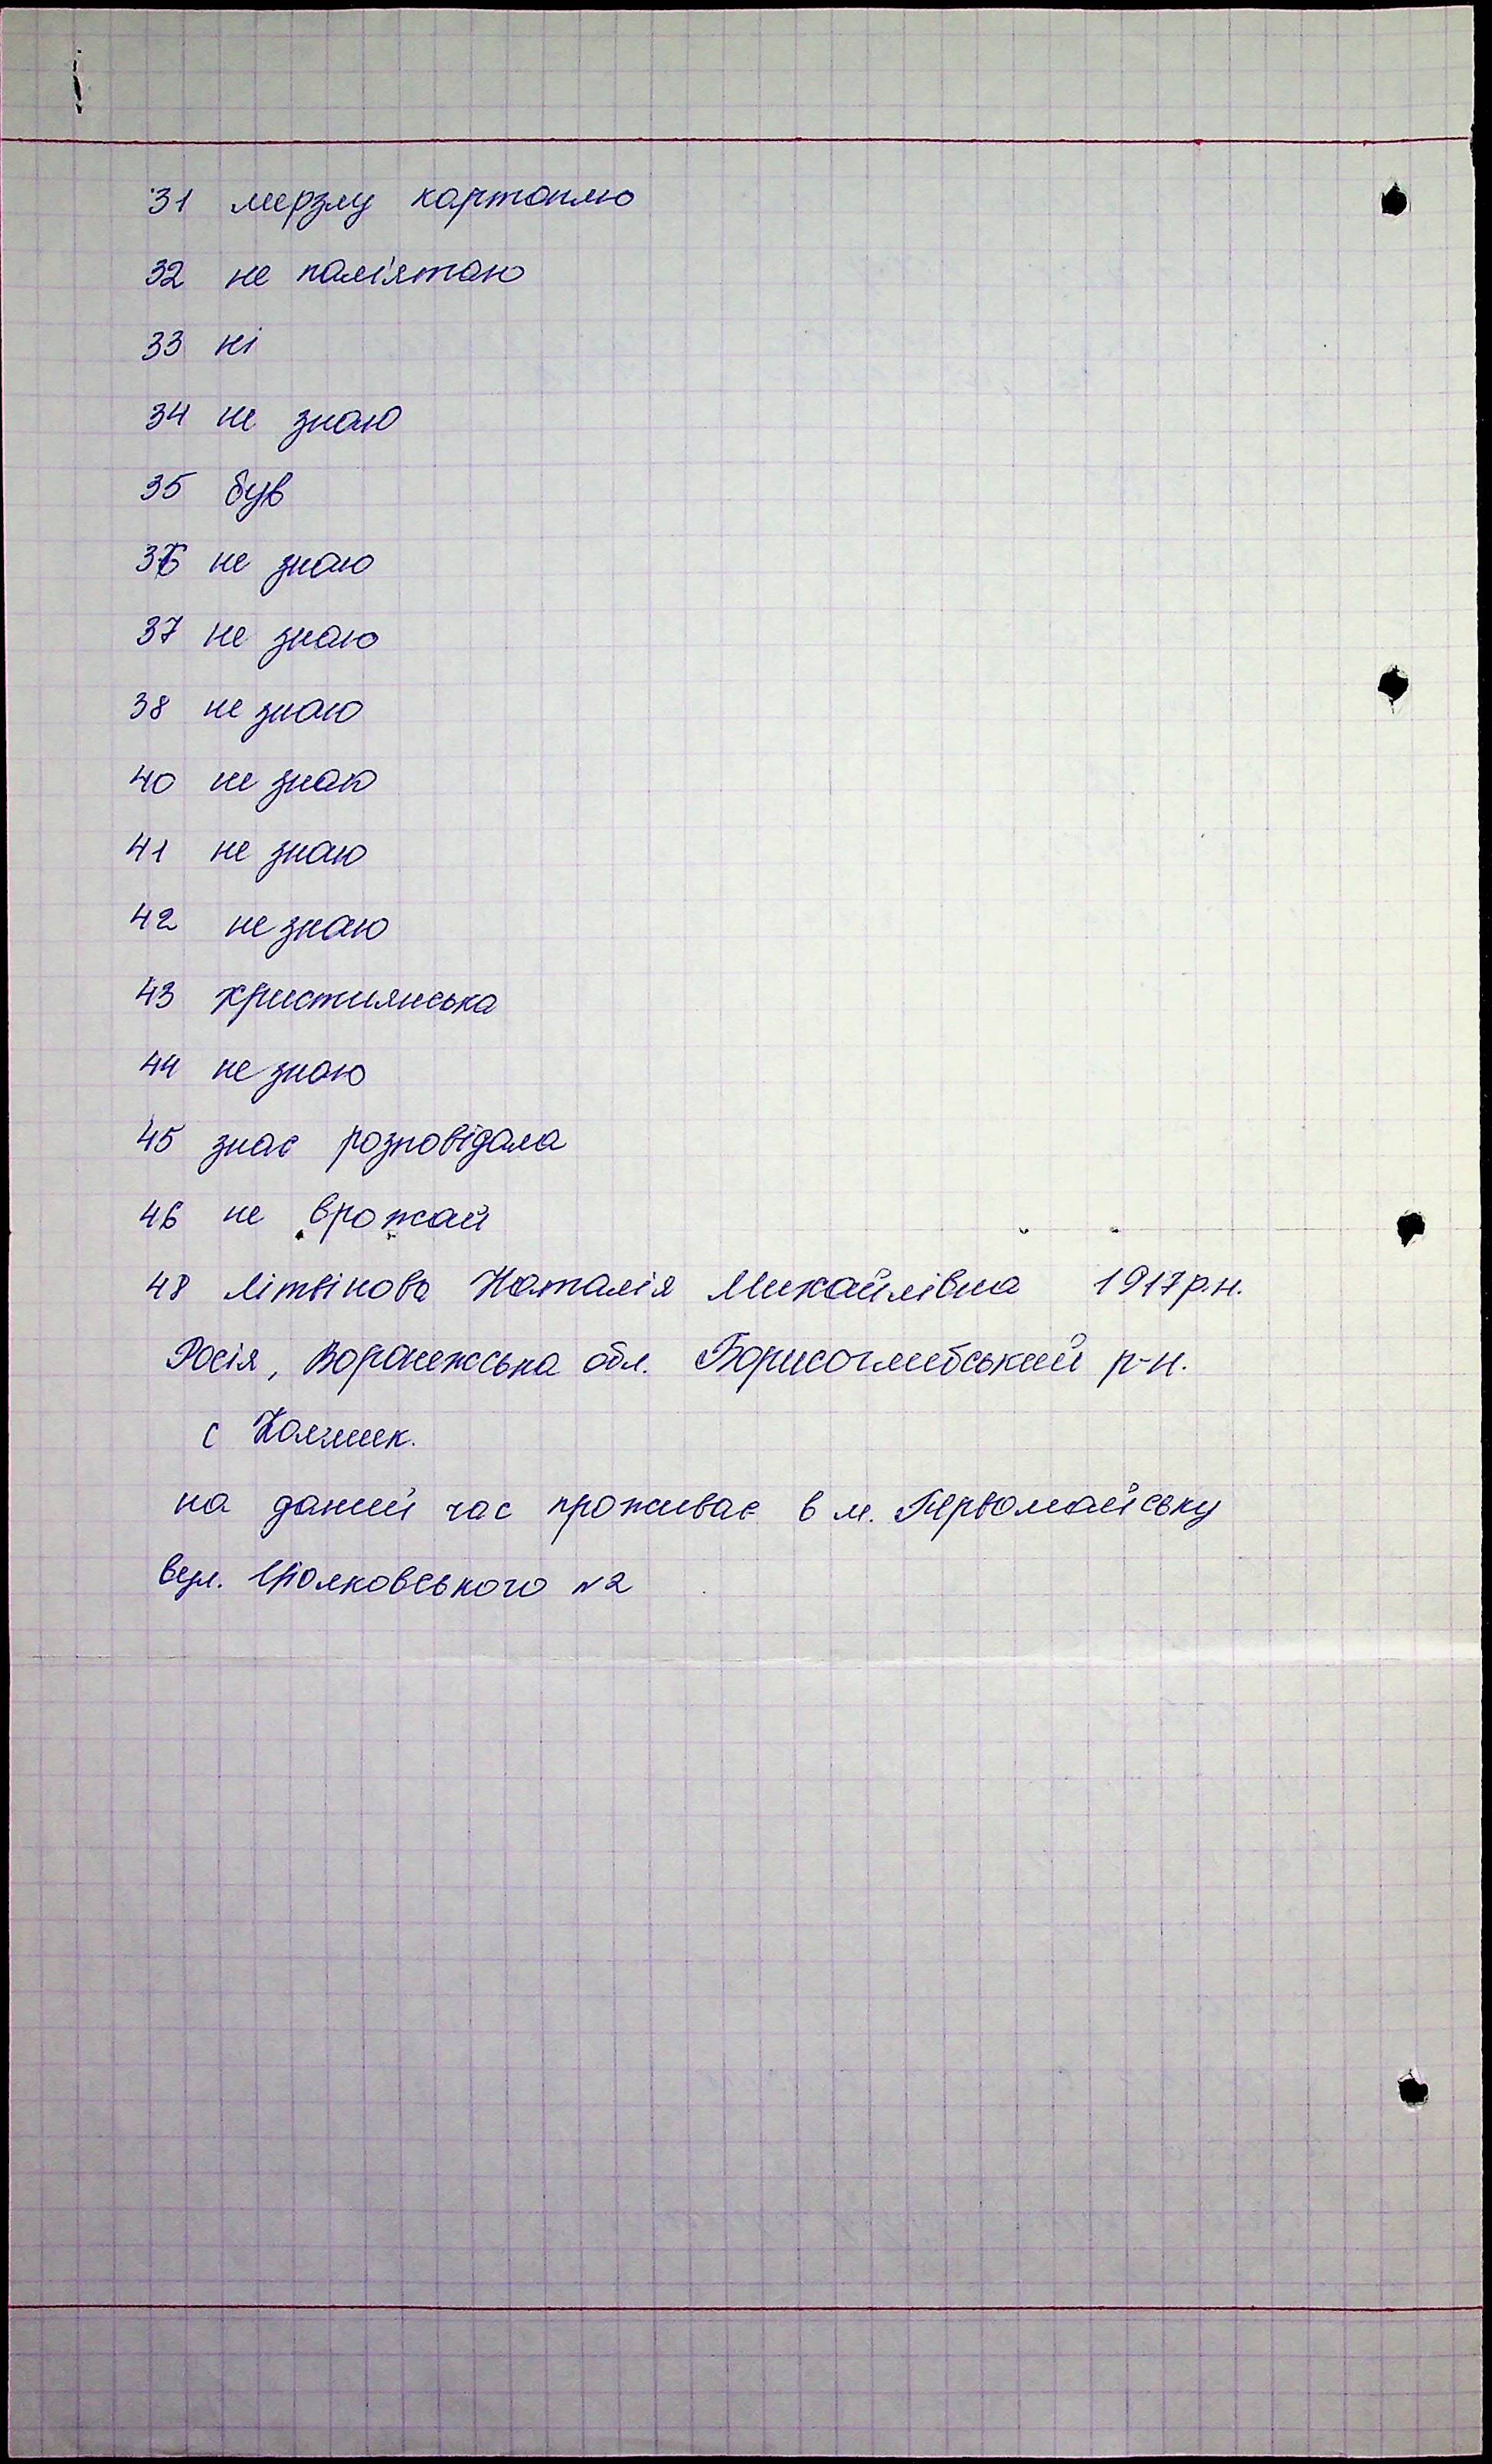 31 мерзлу картоплю
32 не пам'ятаю
33 ні
34 не знаю
35 був
36 не знаю
37 не знаю
38 не знаю
40 не знаю
41 не знаю
42 не знаю
43 християнська
44 не знаю
45 знає розповідала
46 не врожай
48 Літвінова Наталія Михайлівна 1917 р.н.
Росія, Воронежська обл. Борисоглибський р-н.
с
на даний час проживає в м. Первомайську
вул. Ціолковського №2